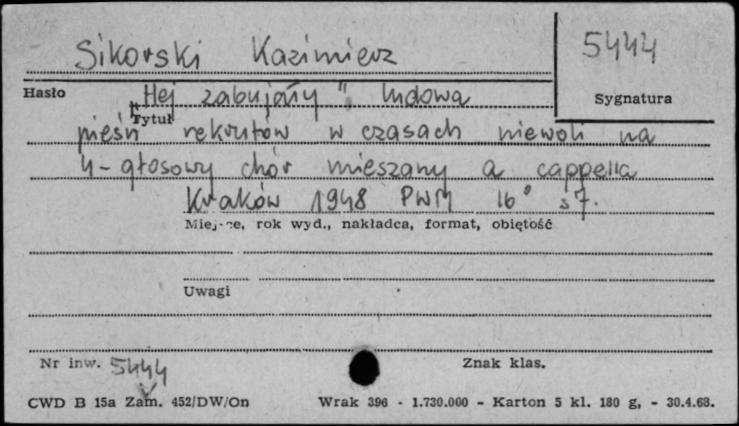 Sikorski Kazimierz
5444
Hasło
Sygnatura
„Hej zabujały", ludowa
Tytuł
pieśń rekrutów w czasach niewoli na
4-głosowy chór mieszany a cappella
Kraków 1948 PWM 16° s 7.
Miejsce, rok wyd., nakładca, format, objętość
Uwagi
Nr inw. 5444
Znak klas.
CWD B 15a Zam. 452/DW/On Wrak 396 - 1.730.000 - Karton 5 kl. 180 g, - 30.4.68.